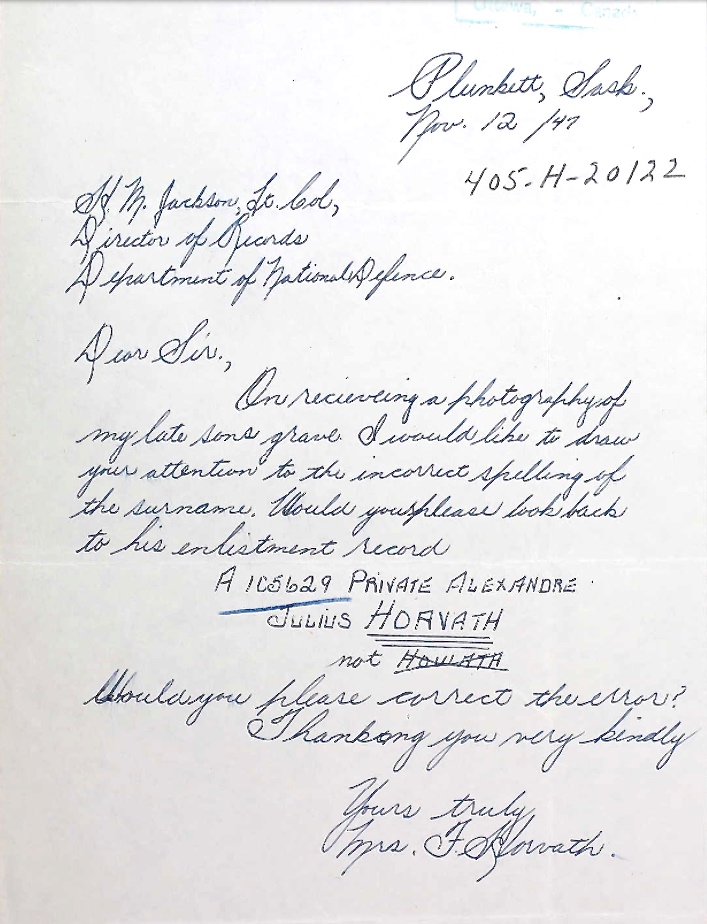 Ottawa, - Canada
Plunkett, Sask.,
Nov. 12 /47
405-H-20122
H. M. Jackson, Lt. Col,
Director of Records
Department of National Defence.
Dear Sir.,
On recieveing a photography of
my late sons grave. I would like to draw
your attention to the incorrect spelling of
the surname. Would you please look back
to his enlistment record
A 105629 PRIVATE ALEXANDRE
JULIUS HORVATH
not
Would you please correct the error?
Thanking you very kindly
Yours truly
Mrs. F. Horvath.